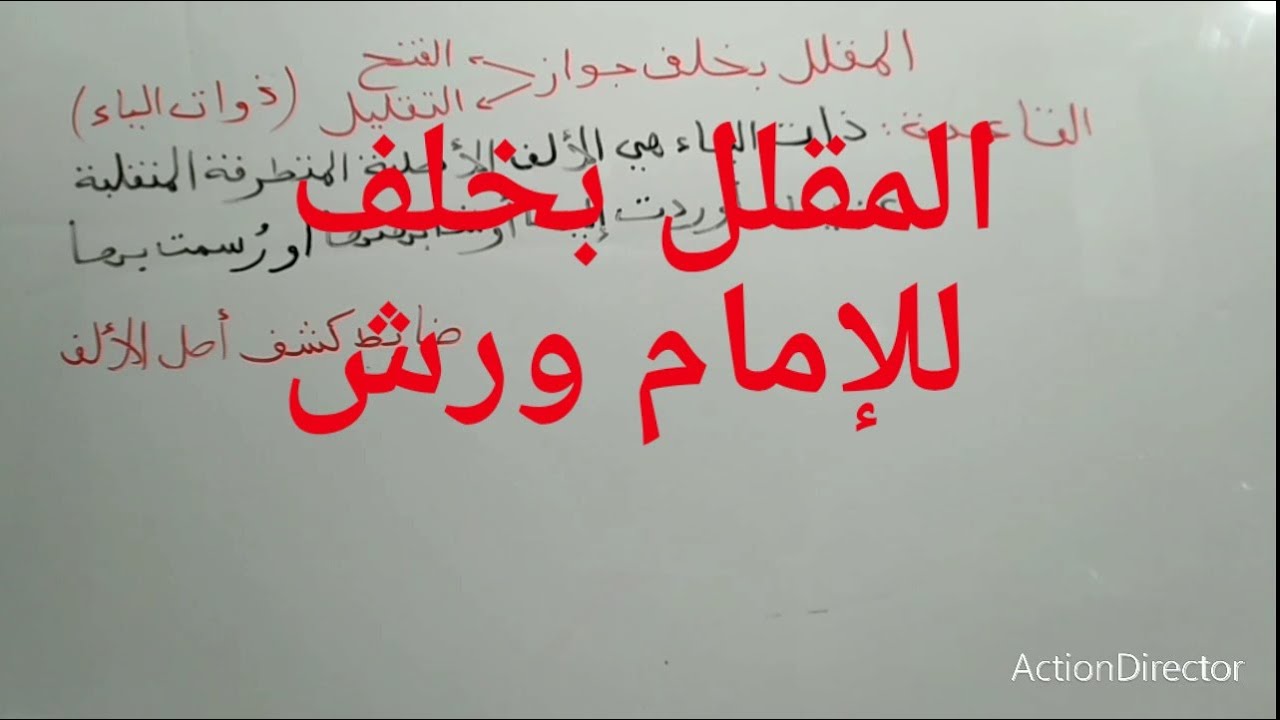 المقلل بخلف جواز
الفتح
التقليل
(ذوات الياء)
القاعدة: ذات الياء هي الألف الأصلية المتطرفة المنقلبة
أو ردت إليها أو رُسمت بها
ضابط كشف أصل الألف
المقلل بخلف
للإمام ورش
ActionDirector